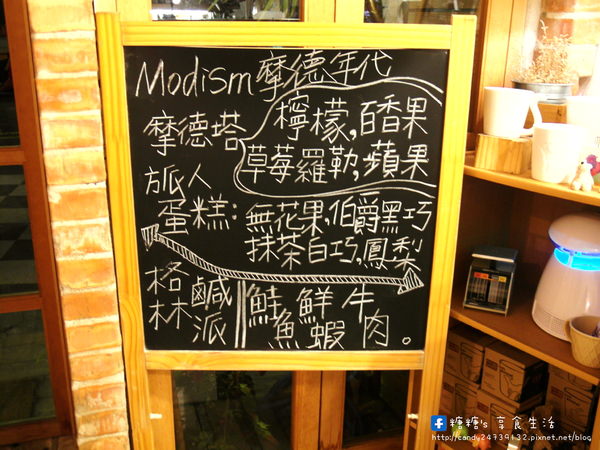 Modism 摩德年代
摩德塔 檸檬,百香果
草莓羅勒,蘋果
旅人
蛋糕: 無花果,伯爵黑巧
抹茶白巧,鳳梨
格林鹹派 鮭魚 鮮蝦 牛肉。
糖糖's 享食生活
http://candy24739132.pixnet.net/blog